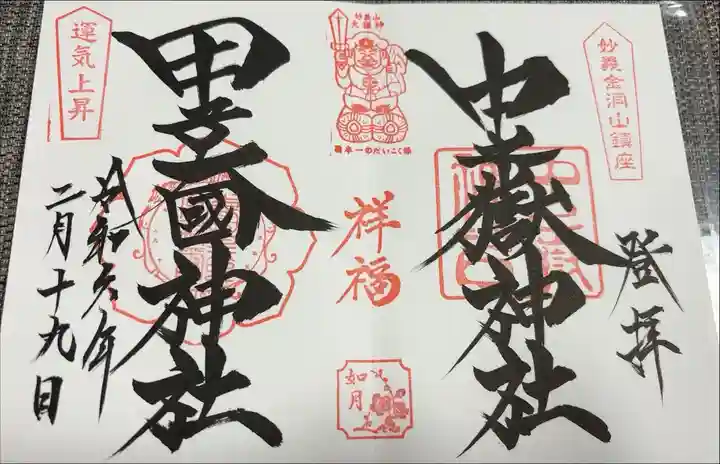 妙義金洞山鎮座
登拝
中之嶽神社
日本一のだいこく様
祥福
如月
運気上昇
甲子大國神社
令和六年
二月十九日